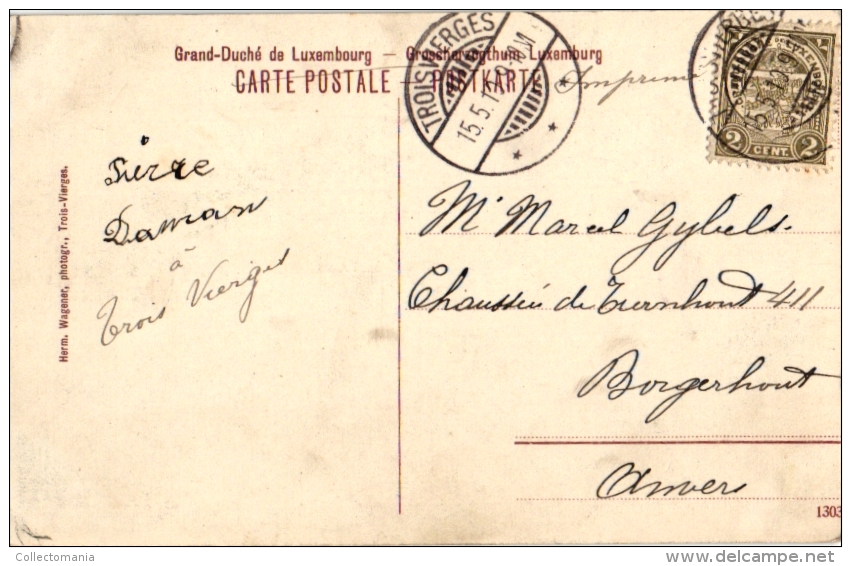 Grand-Duché de Luxembourg — Grossherzogthum Luxemburg
CARTE POSTALE — POSTKARTE
Imprimé
TROISVIERGES
15.5.12
GR. DUCHÉ DE LUXEMBOURG
2 CENT. 2
Pierre
Daman
à
Trois Vierges
Herm. Wagener, photogr., Trois-Vierges.
Mr Marcel Gybels.
Chaussée de Turnhout 411
Borgerhout
Anvers
1303
Collectomania
delcampe.net